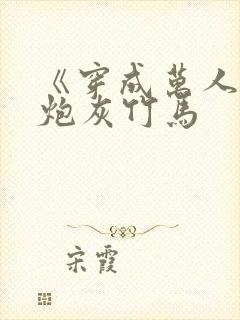 《穿成万人
炮灰竹马
宋霞